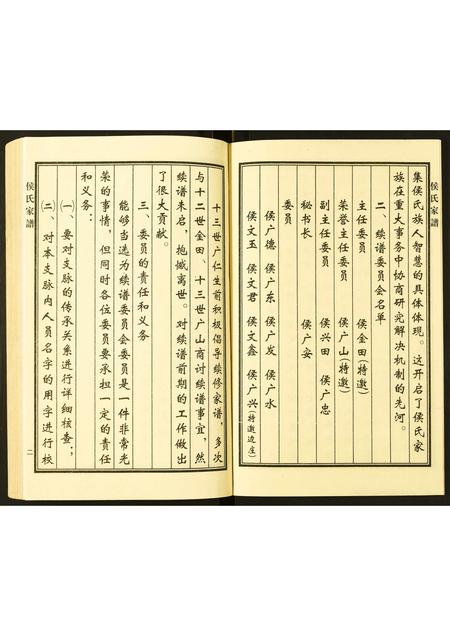 侯氏家谱
集侯氏族人智慧的具体体现。这开启了侯氏家
族在重大事务中协商研究解决机制的先河。
二、续谱委员会名单
主任委员 侯金田(特邀)
荣誉主任委员 侯广山(特邀)
副主任委员 侯兴田 侯广忠
秘书长 侯广安
委员
侯广德 侯广东 侯广友 侯广水
侯文玉 侯文君 侯文鑫 侯广兴(特邀边庄)
十三世广仁生前积极倡导续修家谱,多次
与十二世金田、十三世广山商讨续谱事宜,然
续谱未启,抱憾离世。对续谱前期的工作做出
了很大贡献。
三、委员的责任和义务
能够当选为续谱委员会委员是一件非常光
荣的事情,但同时各位委员要承担一定的责任
和义务:
㈠、要对支脉的传承关系进行详细核查;
㈡、对本支脉内人员名字的用字进行校
侯氏家谱
二